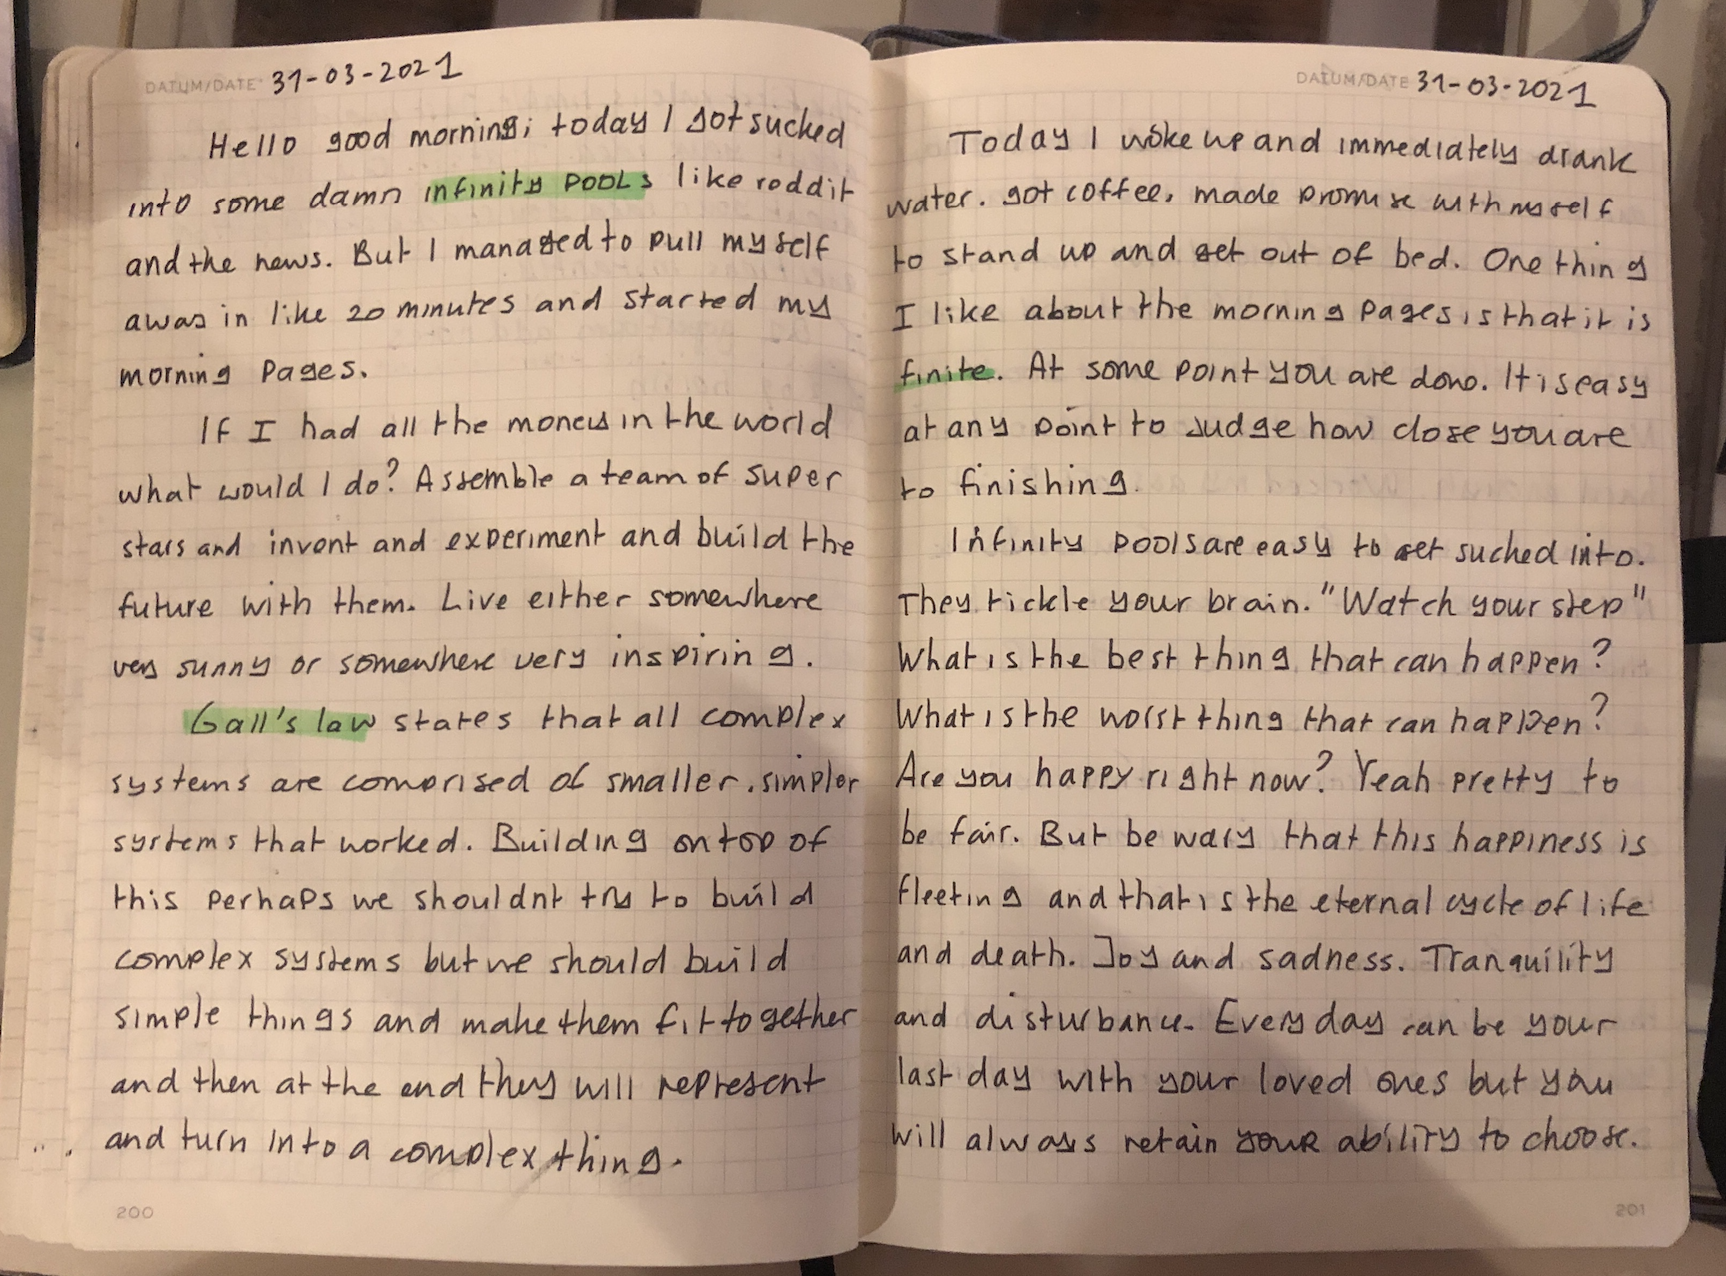 DATUM/DATE 31-03-2021
Hello good morning; today I got sucked
into some damn infinity pools like reddit
and the news. But I managed to pull myself
away in like 20 minutes and started my
morning pages.
If I had all the money in the world
what would I do? Assemble a team of super
stars and invent and experiment and build the
future with them. Live either somewhere
very sunny or somewhere very inspiring.
Gall's law states that all complex
systems are comprised of smaller, simpler
systems that worked. Building on top of
this perhaps we shouldnt try to build
complex systems but we should build
simple things and make them fit together
and then at the end they will represent
and turn into a complex thing.
200
DATUM/DATE 31-03-2021
Today I woke up and immediately drank
water. got coffee, made promise with myself
to stand up and get out of bed. One thing
I like about the morning pages is that it is
finite. At some point you are done. It is easy
at any point to judge how close you are
to finishing.
Infinity pools are easy to get sucked into.
They tickle your brain. "Watch your step"
What is the best thing that can happen?
What is the worst thing that can happen?
Are you happy right now? Yeah pretty to
be fair. But be wary that this happiness is
fleeting and that is the eternal cycle of life
and death. Joy and sadness. Tranquility
and disturbance. Every day can be your
last day with your loved ones but you
will always retain your ability to choose.
201